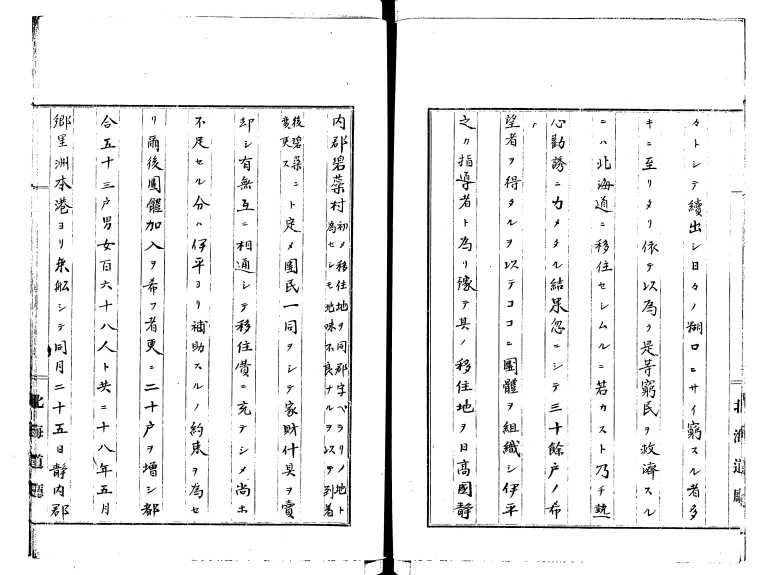 々トシテ續出シ日々ノ糊口ニサイ窮スル者多
キニ至リタリ依テ以為ク是等窮民ヲ救濟スル
ニハ北海道ニ移住セシムルニ若カスト乃チ熱
心勸誘ニカメタル結果忽ニシテ三十餘戸ノ希
望者ヲ得タルヲ以テココニ團體ヲ組織シ伊平
之カ指導者ト為リ豫テ其ノ移住地ヲ日高國靜
北海道廳
内郡碧蘂村初メ移住地ヲ同郡字ベラリノ地ト
為セシモ地味不良ナルヲ以テ到着
後碧蘂ニ
変更スト定メ團民一同ヲシテ家財什具ヲ賣
却シ有無互ニ相通シテ移住費ニ充テシメ尚ホ
不足セル分ハ伊平ヨリ補助スルノ約束ヲ為セ
リ爾後團體加入ヲ希フ者更ニ二十戸ヲ增シ都
合五十三戸男女百六十八人ト共ニ十八年五月
鄉里洲本港ヨリ乗船シテ同月二十五日靜内郡
北海道廳